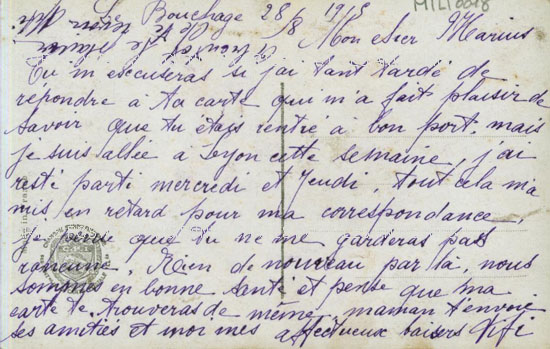 Bouchage 28/8 1918
MIL10048
Mon cher Marius
Tu m'escuseras si j'ai tant tardé de
répondre à ta carte qui m'a fait plaisir de
savoir que tu étais rentré à bon port. mais
je suis allée à Lyon cette semaine, j'ai
resté parti mercredi et Jeudi, tout cela m'a
mis en retard pour ma correspondance,
je pense que tu ne me garderas pas
rancune. Rien de nouveau par là, nous
sommes en bonne santé et pense que ma
carte te trouveras de même. maman t'envoie
ses amitiés et moi mes affectueux baisers Fifi